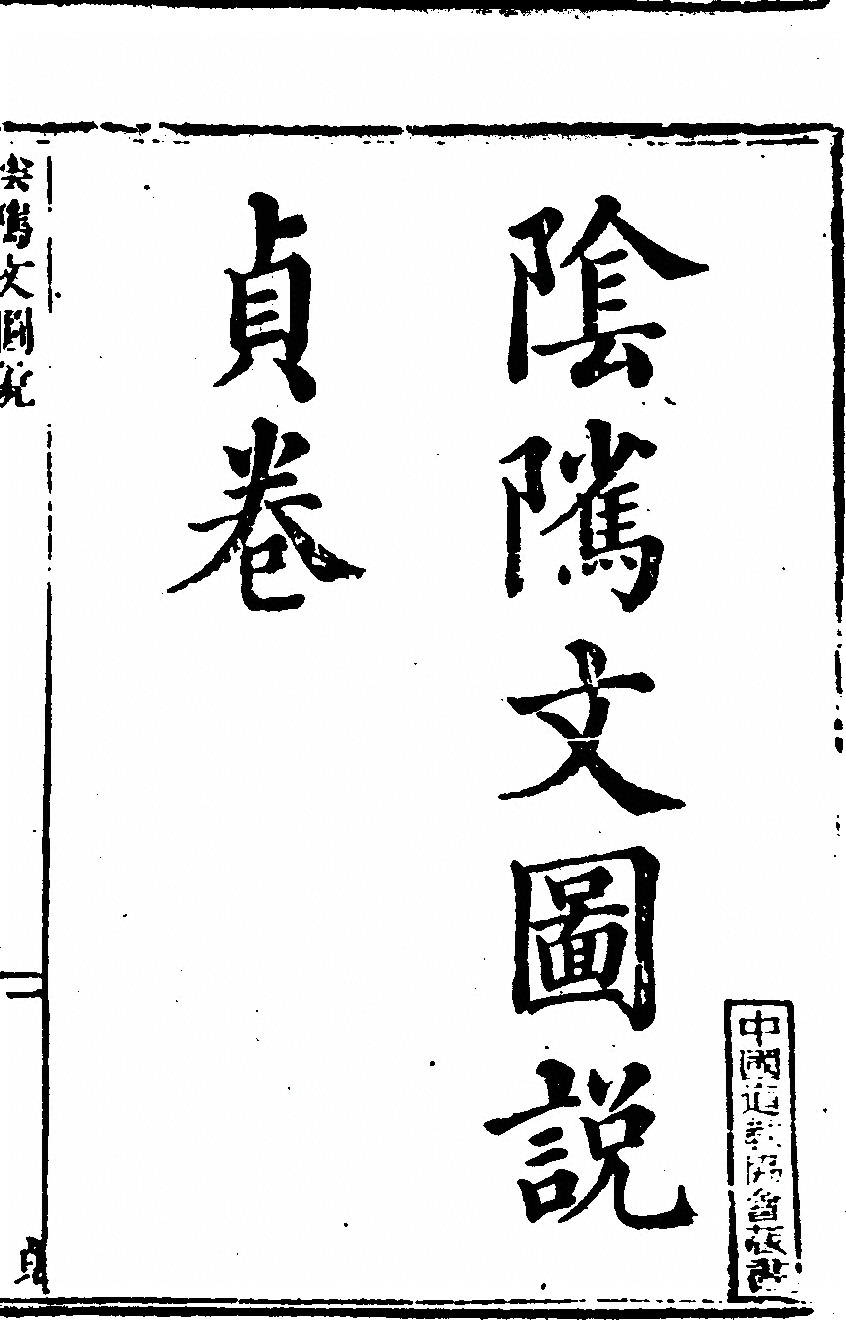 陰隲文圖説
貞卷
中國道教協會藏書
陰隲文圖説
貞